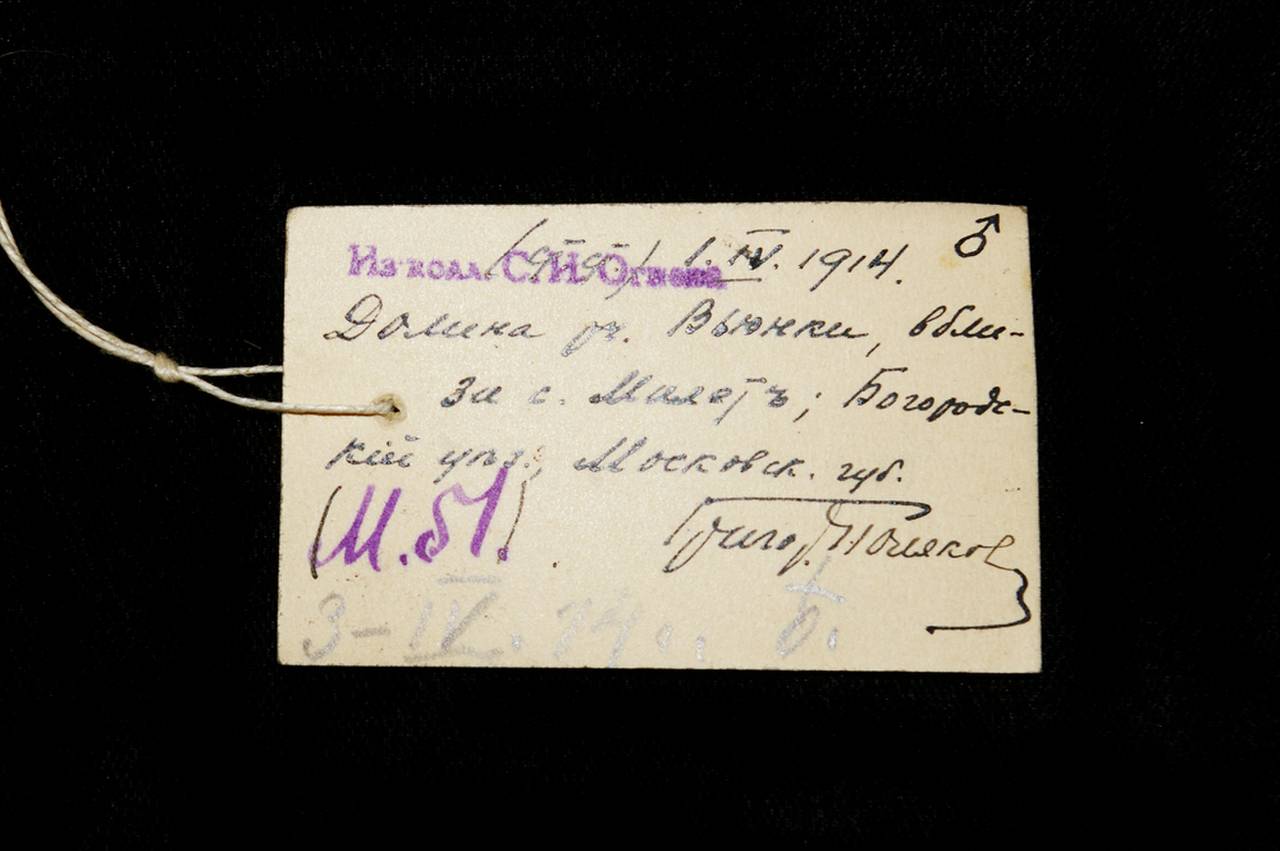 Из колл. С. И. Огнева
1. IV. 1914. ♂
Долина р. Вьюнки, вбли-
за с. Милетъ; Богородс-
кій уѣз., Московск. губ.
(М.б!)
Григор. Поляков
3-IV. 14 г., Б.